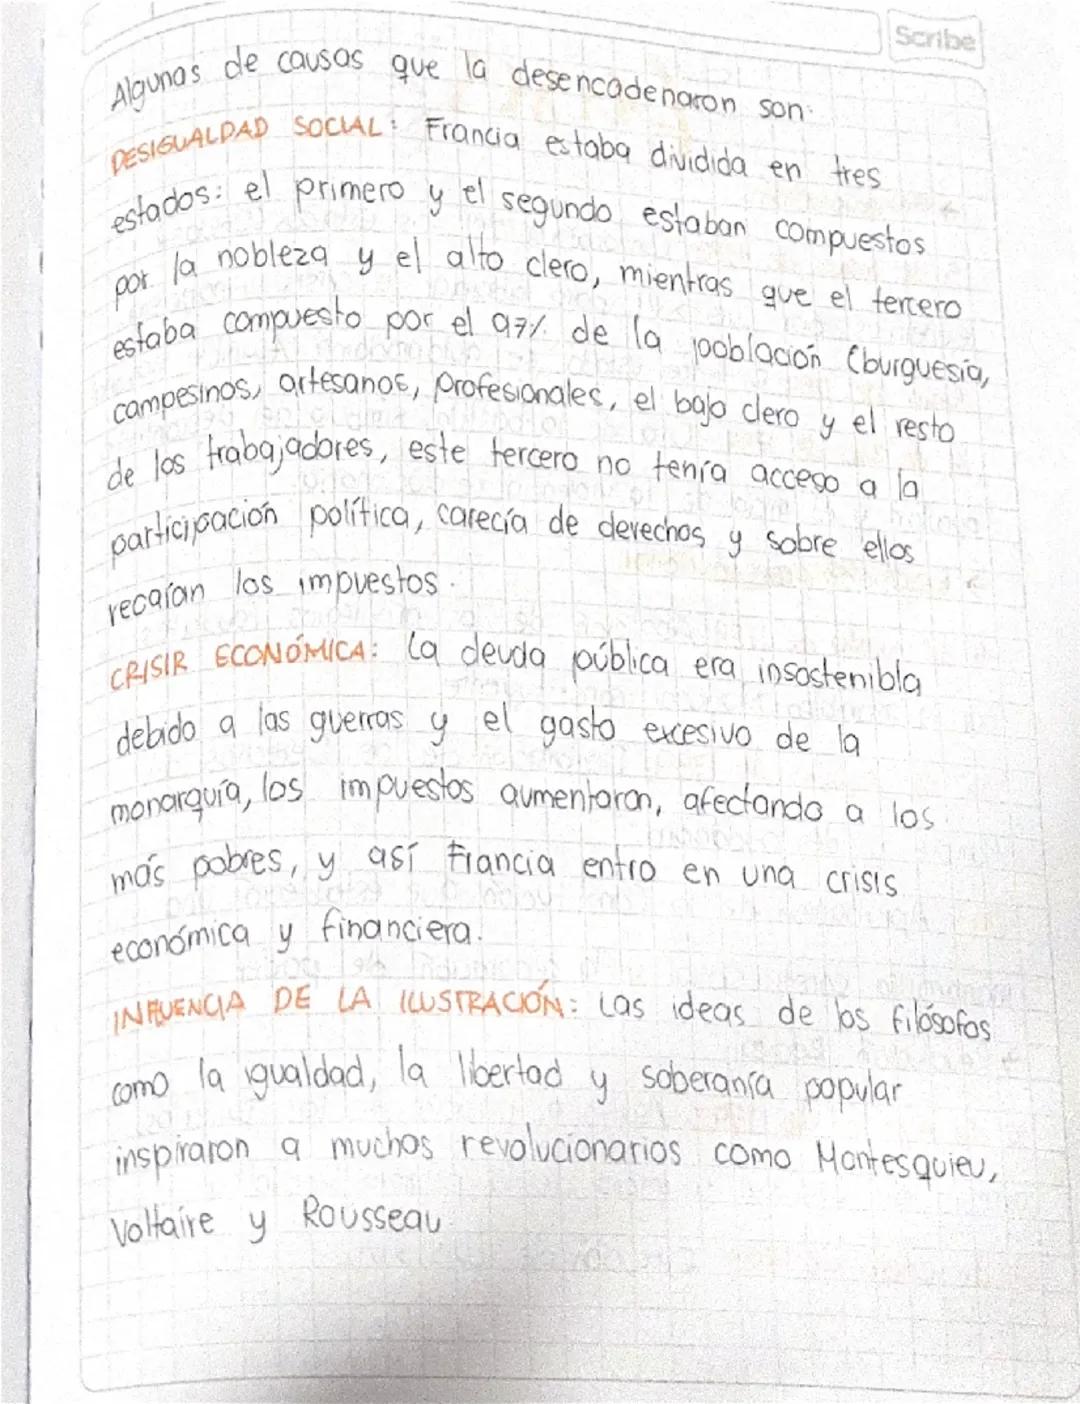 Scribe
Algunas de causas que la desencadenaron son:
DESIGUALDAD SOCIAL: Francia estaba dividida en tres
estados: el primero y el segundo estaban compuestos
por la nobleza y el alto clero, mientras que el tercero
estaba compuesto por el 97% de la población (burguesía,
campesinos, artesanos, profesionales, el bajo clero y el resto
de los trabajadores, este tercero no tenía acceso a la
participación política, carecía de derechos y sobre ellos
recaían los impuestos.
CRISIR ECONÓMICA: La deuda pública era insostenibla
debido a las guerras y el gasto excesivo de la
monarquía, los impuestos aumentaron, afectando a los
más pobres, y así Francia entro en una crisis
económica y financiera.
INFLUENCIA DE LA ILUSTRACIÓN: Las ideas de los filósofos
como la igualdad, la libertad y soberanía popular
inspiraron a muchos revolucionarios como Montesquieu,
Voltaire y Rousseau.